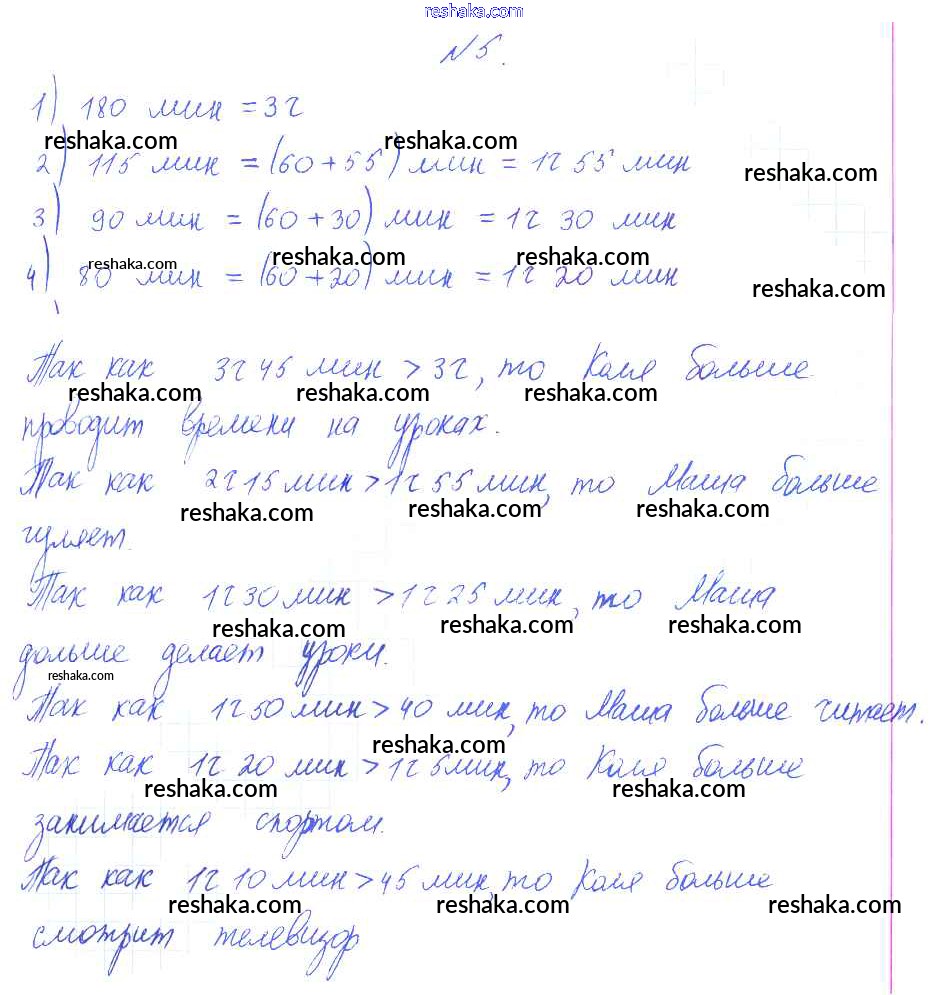 reshaka.com
№5.
1) 180 мин = 3ч
reshaka.com reshaka.com
2) 115 мин = (60+55) мин = 1ч 55 мин
reshaka.com
3) 90 мин = (60+30) мин = 1ч 30 мин
reshaka.com reshaka.com reshaka.com
4) 80 мин = (60+20) мин = 1ч 20 мин
reshaka.com
Так как 3ч 45 мин > 3ч, то Коля больше
reshaka.com reshaka.com reshaka.com
проводит времени на уроках.
Так как 2ч 15 мин > 1ч 55 мин, то Маша больше
reshaka.com reshaka.com reshaka.com
гуляет.
Так как 1ч 30 мин > 1ч 25 мин, то Маша
reshaka.com reshaka.com reshaka.com
дольше делает уроки.
reshaka.com
Так как 1ч 50 мин > 40 мин, то Маша больше читает.
reshaka.com
Так как 1ч 20 мин > 1ч 5мин, то Коля больше
reshaka.com reshaka.com reshaka.com
занимается спортом.
Так как 1ч 10 мин > 45 мин, то Коля больше
reshaka.com reshaka.com reshaka.com
смотрит телевизор